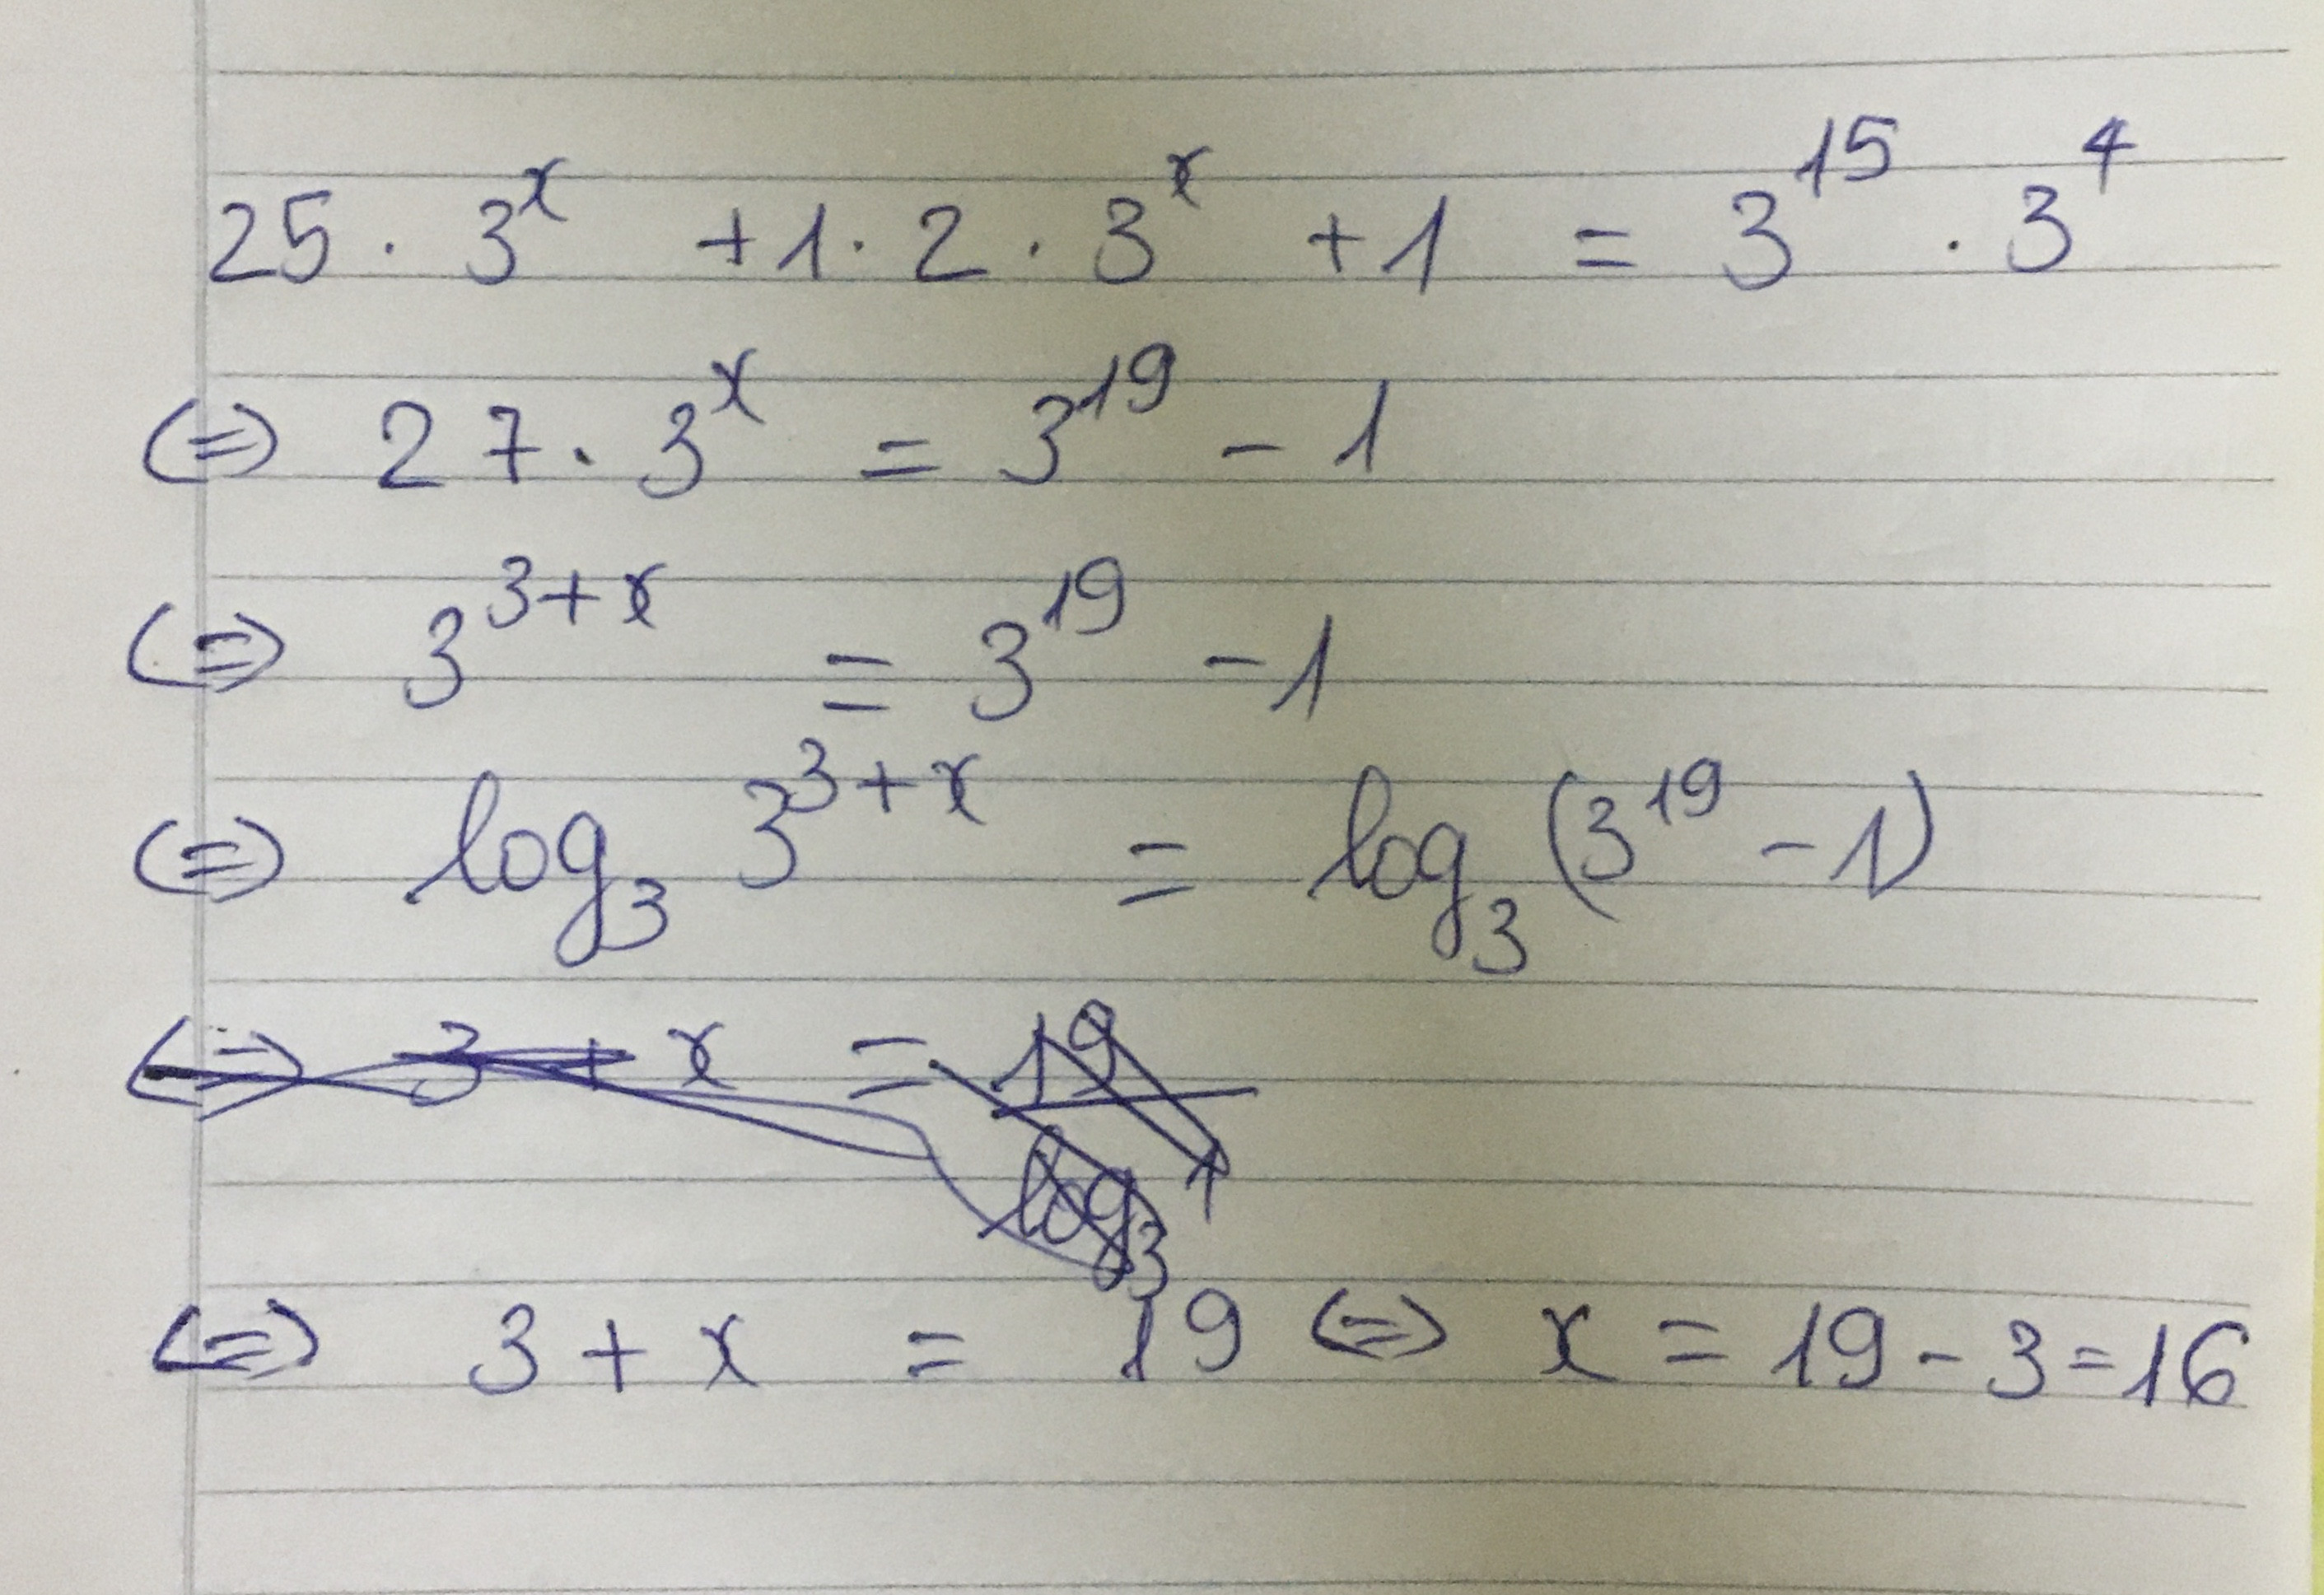 25 · 3^x + 1 · 2 · 3^x + 1 = 3^15 · 3^4
(=) 27 · 3^x = 3^19 - 1
(=) 3^(3+x) = 3^19 - 1
(=) log_3 3^(3+x) = log_3 (3^19 - 1)
(=) 3 + x = 19
log_3 1
(=) 3 + x = 19 (=) x = 19 - 3 = 16